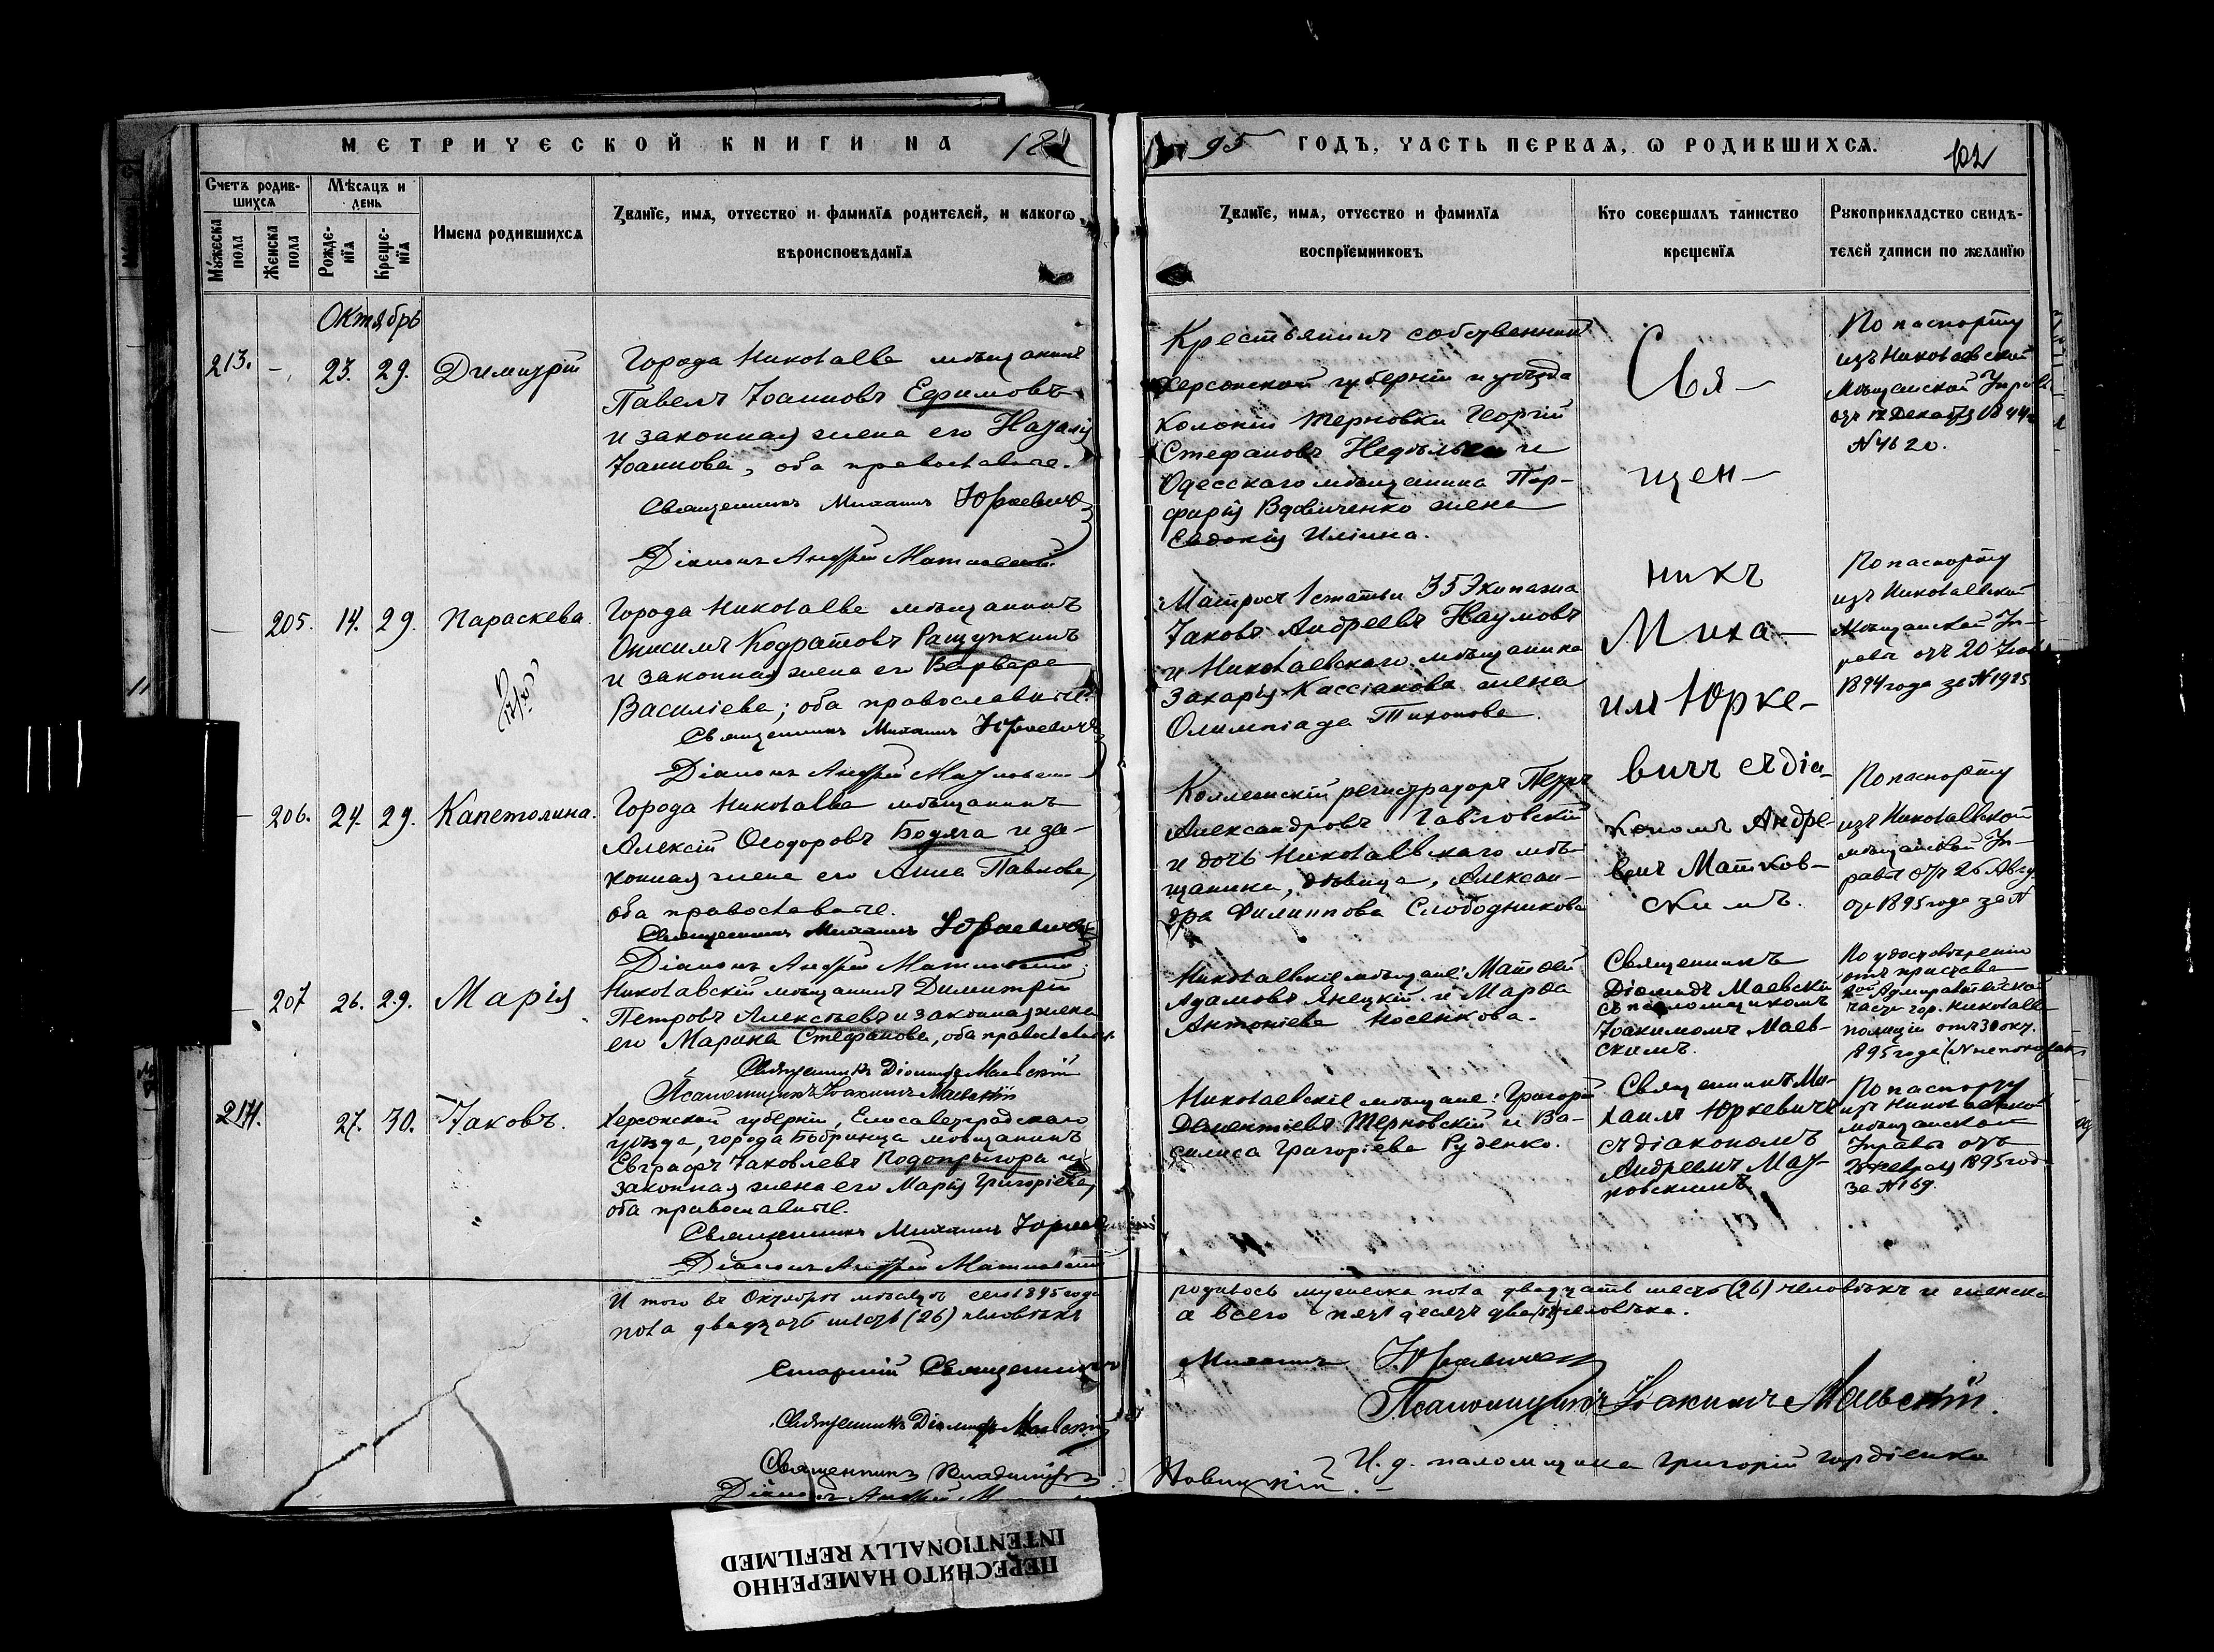 МЕТРИЧЕСКОЙ КНИГИ НА 18
95 ГОДЪ, ЧАСТЬ ПЕРВАѦ, Ѡ РОДИВШИХСѦ.
102
Счетъ родив-
шихсѧ
Мѣсѧцъ и
день
Мꙋжеска пола
Женска пола
Рожде-
нїѧ
Креще-
нїѧ
Имена родившихсѧ
Званїе, имѧ, отчество и фамилїѧ родителей, и какогѡ
вѣроисповѣданїѧ
Званїе, имѧ, отчество и фамилїѧ
воспрїемниковъ
Кто совершалъ таинство
крещенїѧ
Рꙋкоприкладство свидѣ-
телей записи по желанїю
Октябрь
213. - 23. 29. Димитрій
Города Николаева мѣщанинъ
Павелъ Іоанновъ Ефимовъ
и законная жена его Наталія
Іоаннова, оба православные.
Священникъ Михаилъ Юркевичъ
Діаконъ Андрей Матковскій
Крестьянинъ собственникъ
Херсонской губерніи и уѣзда
колоніи Терновки Георгій
Стефановъ Недѣлько и
Одесскаго мѣщанина Пор-
фирія Вдовиченко жена
Евдокія Иліина.
По паспорту
изъ Николаевской
Мѣщанской Управы
отъ 12 Декабря
N 4620.
— 205. 14. 29. Параскева.
Города Николаева мѣщанинъ
Онисимъ Кодратовъ Ращупкинъ
и законная жена его Варвара
Василіева; оба православные.
Священникъ Михаилъ Юркевичъ
Діаконъ Андрей Матковскій
Матросъ 1 статьи 35 Экипажа
Іаковъ Андреевъ Наумовъ
и Николаевскаго мѣщанина
Захарія Кассіанова жена
Олимпіада Тихонова.
По паспорту
изъ Николаевской
Мѣщанской Уп-
равы отъ 20
1894 года за N 1925
— 206. 24. 29. Капетолина.
Города Николаева мѣщанинъ
Алексій Ѳеодоровъ Бодяга и за-
конная жена его Анна Павлова,
оба православные.
Священникъ Михаилъ Юркевичъ
Діаконъ Андрей Матковскій
Коллежскій регистраторъ Петръ
Александровъ Павловскій
и дочь Николаевскаго мѣ-
щанина, дѣвица, Алексан-
дра Филиппова Слободникова
По паспорту
изъ Николаевской
мѣщанской Уп-
равы отъ 26 Авгу-
ста 1895 года за N
Свя-
щен-
никъ
Миха-
илъ Юрке-
вичъ съ діа-
кономъ Андре-
емъ Матков-
скимъ.
— 207 26. 29. Марія
Николаевскій мѣщанинъ Димитрій
Петровъ Алексѣевъ и законная жена
его Марина Стефанова, оба православные.
Священникъ Діомидъ Маевскій
Псаломщикъ Іоакимъ Маевскій
Николаевскіе мѣщане: Матѳей
Адамовъ Янецкій и Марѳа
Антоніева Носенкова.
Священникъ
Діомидъ Маевскій
съ псаломщикомъ
Іоакимомъ Маев-
скимъ.
По удостовѣренію
отъ пристава
2ой Адмиралтейской
части гор. Николаева
полиціи отъ 30 окт.
1895 года
214. 27. 30. Іаковъ.
Херсонской губерніи, Елисаветградскаго
уѣзда, города Бобринца мѣщанинъ
Евграфъ Іаковлевъ Подопрыгора и
законная жена его Марія Григоріева,
оба православные.
Священникъ Михаилъ Юркевичъ
Діаконъ Андрей Матковскій
Николаевскіе мѣщане: Григорій
Дементіевъ Терновскій и Ва-
силиса Григоріева Руденко.
Священникъ Ми-
хаилъ Юркевичъ
съ діакономъ
Андреемъ Мат-
ковскимъ.
По паспорту
изъ Николаевской
мѣщанской
Управы отъ
Февраля 1895 года
за N 169.
И того въ Октябрѣ мѣсяцѣ сего 1895 года
родилось мужеска пола двадцать шесть (26) человѣкъ и женска
пола двадцать шесть (26) человѣкъ
а всего пятьдесятъ два (52) человѣка.
Старшій Священникъ
Михаилъ Юркевичъ
Священникъ Діомидъ Маевскій
Псаломщикъ Іоакимъ Маевскій.
Священникъ Владиміръ
Новицкій.
И. д. псаломщика Григорій Гордіенко
Діаконъ Андрей
ПЕРЕСНЯТО НАМЕРЕННО
INTENTIONALLY REFILMED